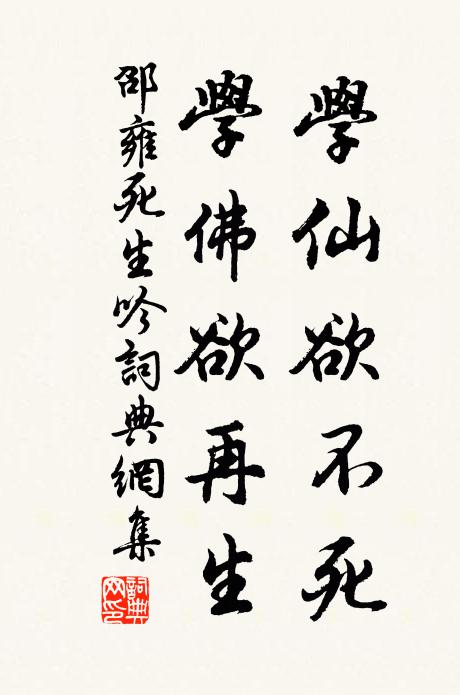 學仙欲不死
學佛欲再生
邵雍死生吟詞典網集
詞典
网印